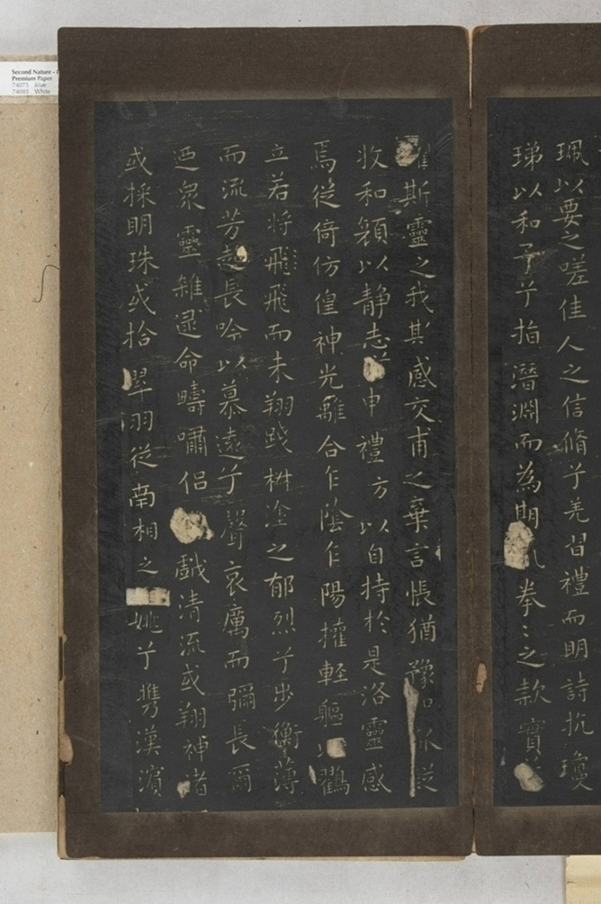 珮以要之嗟佳人之信脩兮羌習禮而明詩抗瓊
珶以和予兮指潛淵而為期拳〻之款實
懼斯靈之我其感交甫之棄言悵猶豫
收和顏以静志申禮方以自持於是洛靈感
焉徙倚仿偟神光離合乍陰乍陽擢輕軀以鸖
立若将飛飛而未翔踐椒塗之郁烈兮步衡薄
而流芳超長吟以慕遠兮聲哀厲而彌長爾
迺衆靈雜遝命疇嘯侶戲清流或翔神渚
或採明珠或拾翠羽從南相之姚兮攜漢濱
Second Nature -
Premium Paper
74075 Blue
74085 White